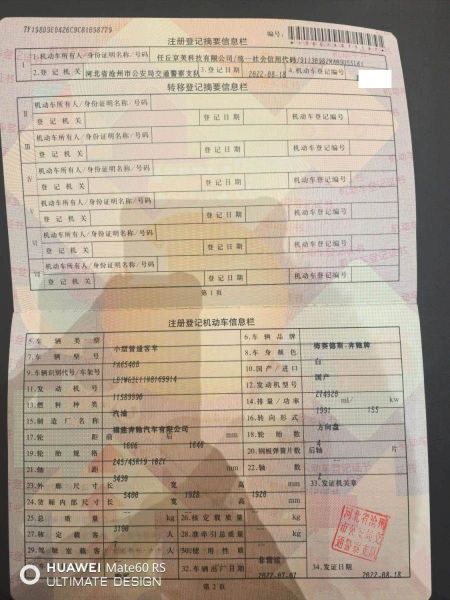 TF19803E0426C9C81698779
注册登记摘要信息栏
编号:
I
1.机动车所有人/身份证明名称/号码
任丘京美科技有限公司/统一社会信用代码/
2.登记机关
河北省沧州市公安局交通警察支队
3.登记日期
2022-08-18
4.机动车登记编号
转移登记摘要信息栏
II
机动车所有人/身份证明名称/号码
登记机关
登记日期
机动车登记编号
III
机动车所有人/身份证明名称/号码
登记机关
登记日期
机动车登记编号
IV
机动车所有人/身份证明名称/号码
登记机关
登记日期
机动车登记编号
V
机动车所有人/身份证明名称/号码
登记机关
登记日期
机动车登记编号
VI
机动车所有人/身份证明名称/号码
登记机关
登记日期
机动车登记编号
VII
机动车所有人/身份证明名称/号码
登记机关
登记日期
机动车登记编号
第1页
注册登记机动车信息栏
5.车辆类型
小型普通客车
6.车辆品牌
梅赛德斯-奔驰牌
7.车辆型号
8.车身颜色
白
9.车辆识别代号/车架号
10.国产/进口
国产
11.发动机号
12.发动机型号
13.燃料种类
汽油
14.排量/功率
1991 ml/ 155 kw
15.制造厂名称
福建奔驰汽车有限公司
16.转向形式
方向盘
17.轮距
前 1666 后 1646 mm
18.轮胎数
4
19.轮胎规格
245/45R19 102Y
20.钢板弹簧片数
后轴 片
21.轴距
3430 mm
22.轴数
2
23.外廓尺寸
长 5400 宽 1928 高 1920 mm
33.发证机关章
24.货厢内部尺寸
长 宽 高 mm
25.总质量
3100 kg
26.核定载质量
kg
27.核定载客
人
28.准牵引总质量
kg
29.驾驶室载客
人
30.使用性质
非营运
32.车辆出厂日期
34.发证日期
2022-08-18
河北省沧州市公安局交通警察支队
第2页
HUAWEI Mate60 RS
ULTIMATE DESIGN